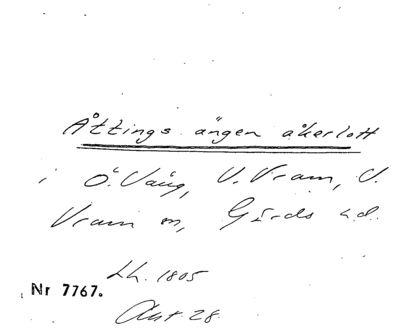 Åttings ängen åkerlott
i Ö. Vång, V. Vram, V.
Vram sn, Gärds h.d.
Lh. 1805
Nr 7767.
Akt 28.